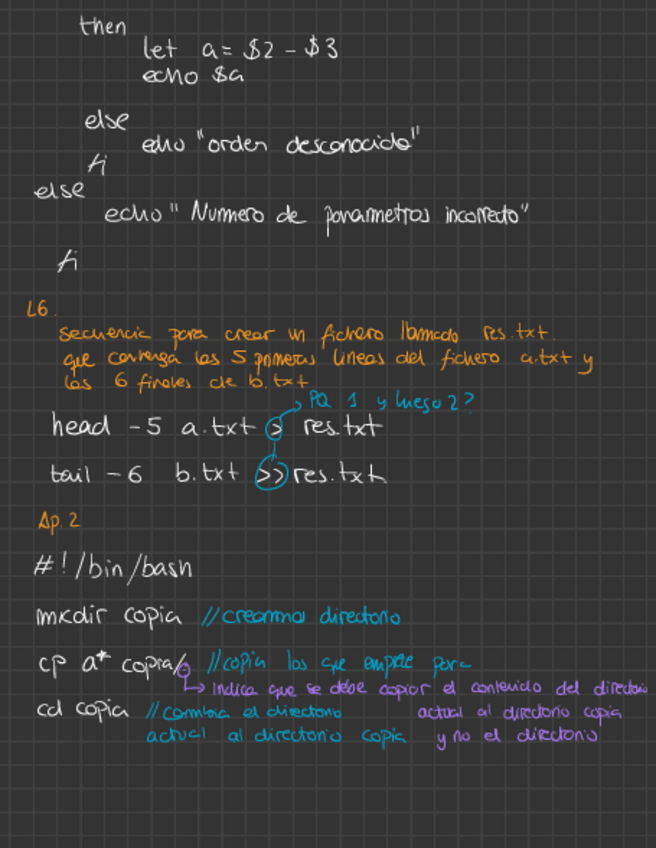 then
let a = $2 - $3
echo $a
else
echo "orden desconocida"
fi
else
echo "Numero de parametros incorrecto"
fi
L6.
secuencia para crear un fichero llamado res.txt.
que contenga las 5 primeras lineas del fichero a.txt y
las 6 finales de b.txt
PQ 1 y luego 2?
head -5 a.txt > res.txt
tail -6 b.txt >> res.txt
Ap. 2
#!/bin/bash
mkdir copia //creamos directorio
cp a* copia/. //copia los que empiece por a
Indica que se debe copiar el contenido del directorio
actual al directorio copia
y no el directorio
cd copia //cambia el directorio
actual al directorio copia